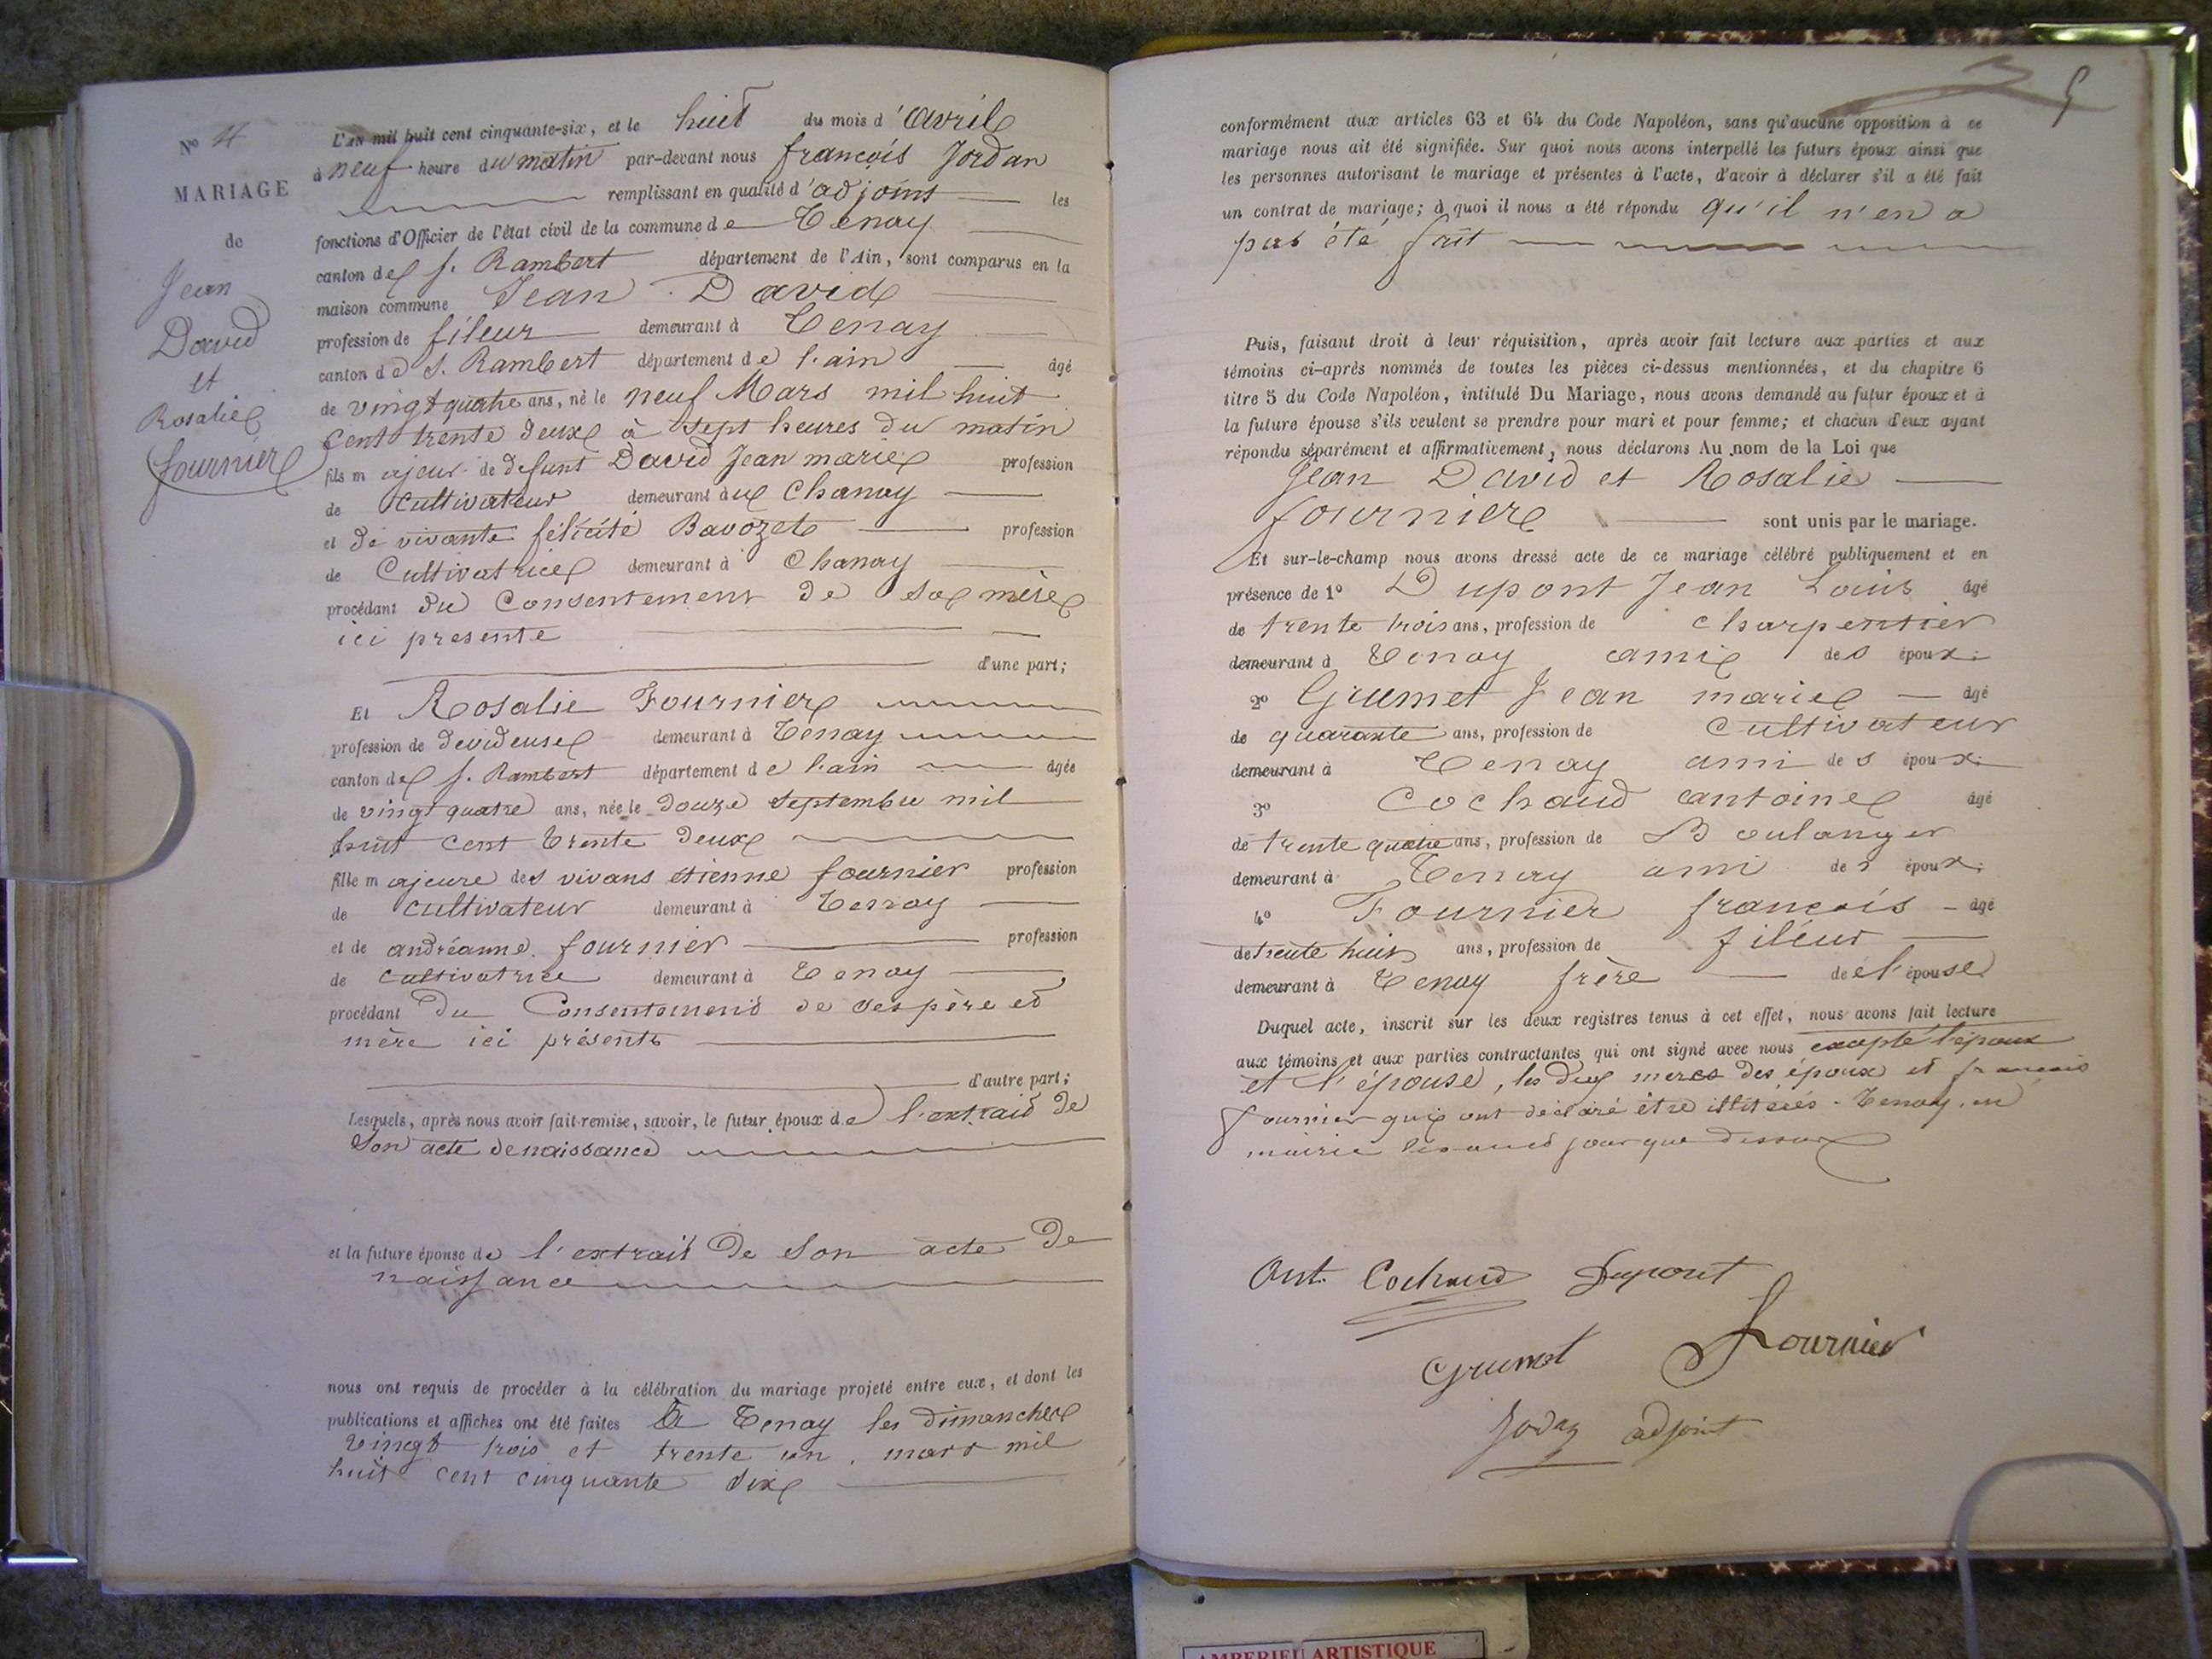 Nº 4
MARIAGE
de
Jean
David
et
Rosalie
fournier
L'an mil huit cent cinquante-six, et le huit du mois d'avril
à neuf heure du matin par-devant nous françois Jordan
remplissant en qualité d'adjoint les
fonctions d'Officier de l'état civil de la commune de Tenay
canton de S. Rambert département de l'Ain, sont comparus en la
maison commune Jean David
profession de fileur demeurant à Tenay
canton de S. Rambert département de l'ain âgé
de vingt quatre ans, né le neuf Mars mil huit
cent trente deux à sept heures du matin
fils majeur de defunt David Jean marie profession
de Cultivateur demeurant à Chanay
et de vivante félicité Bavozet profession
de Cultivatrice demeurant à Chanay
procédant du Consentement de sa mère
ici presente
d'une part;
Et Rosalie Fournier
profession de devideuse demeurant à Tenay
canton de S. Rambert département de l'ain âgée
de vingt quatre ans, née le douze septembre mil
huit cent trente deux
fille majeure des vivans étienne fournier profession
de cultivateur demeurant à Tenay
et de andréanne fournier profession
de cultivatrice demeurant à Tenay
procédant du Consentement de ses père et
mère ici présents
d'autre part;
Lesquels, après nous avoir fait remise, savoir, le futur époux de l'extrait de
Son acte de naissance
et la future épouse de l'extrait de son acte de
naissance
nous ont requis de procéder à la célébration du mariage projeté entre eux, et dont les
publications et affiches ont été faites à Tenay les dimanches
vingt trois et trente un mars mil
huit cent cinquante six
5
conformément aux articles 63 et 64 du Code Napoléon, sans qu'aucune opposition à ce
mariage nous ait été signifiée. Sur quoi nous avons interpellé les futurs époux ainsi que
les personnes autorisant le mariage et présentes à l'acte, d'avoir à déclarer s'il a été fait
un contrat de mariage; à quoi il nous a été répondu qu'il n'en a
pas été fait
Puis, faisant droit à leur réquisition, après avoir fait lecture aux parties et aux
témoins ci-après nommés de toutes les pièces ci-dessus mentionnées, et du chapitre 6
titre 5 du Code Napoléon, intitulé Du Mariage, nous avons demandé au futur époux et à
la future épouse s'ils veulent se prendre pour mari et pour femme; et chacun d'eux ayant
répondu séparément et affirmativement, nous déclarons Au nom de la Loi que
Jean David et Rosalie
fournier sont unis par le mariage.
Et sur-le-champ nous avons dressé acte de ce mariage célébré publiquement et en
présence de 1º Dupont Jean Louis âgé
de trente trois ans, profession de charpentier
demeurant à Tenay ami des époux;
2º Grumet Jean marie âgé
de quarante ans, profession de Cultivateur
demeurant à Tenay ami des époux;
3º Cochaud antoine âgé
de trente quatre ans, profession de Boulanger
demeurant à Tenay ami des époux;
4º Fournier françois âgé
de trente huit ans, profession de fileur
demeurant à Tenay frère de l'épouse
Duquel acte, inscrit sur les deux registres tenus à cet effet, nous avons fait lecture
aux témoins et aux parties contractantes qui ont signé avec nous excepté l'époux
et l'épouse, les deux meres des époux et francois
fournier qui ont déclaré être illitérés. Tenay, en
mairie les mois jour que dessus
Ant. Cochaud Dupont
Grumet Fournier
Jordan adjoint
AMBERIEU ARTISTIQUE